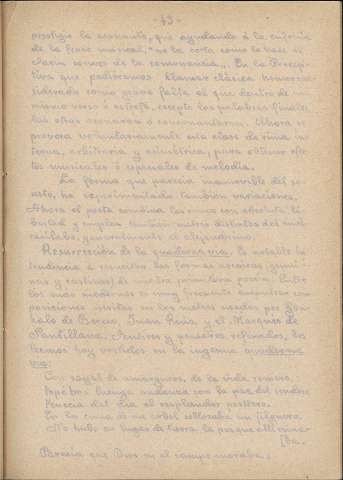 - 43 -
prestigio la asonante, que ayudando á la euritmia
de la frase musical, "no la corta como la hace el
clarín sonoro de la consonancia. En la Precep-
tiva que podríamos llamar clásica, era consi-
derado como grave falta el que dentro de un
mismo verso ó estrofa, excepto las palabras finales,
las otras asonaran ó consonantaran. Ahora se
provoca voluntariamente esta clase de rima in-
terna, arbitraria y asimétrica, para obtener efec-
tos musicales ó especiales de melodía.
La forma que parecía inamovible del so-
neto, ha experimentado también variaciones.
Ahora el poeta combina las rimas con absoluta li-
bertad y emplea también metros distintos del ende-
casílabo, generalmente el alejandrino.
Resurrección de la quaderna vía. Es notable la
tendencia á resucitar las formas arcaicas
de nuestra primitiva poesía. Entre
los más modernos es muy frecuente encontrar com-
posiciones escritas en los metros usados por Gon-
zalo de Berceo, Juan Ruiz, y el Marqués de
Santillana. Ambos y pensares refinados, los
vemos hoy vestidos en la ingenua quaderna
vía:
Con sayal de amarguras, de la vida romero,
topé tras luenga andanza con la paz de un sendero.
Fenecía del día el resplandor postrero.
En la cima de un árbol sollozaba un jilguero.
No hubo en lugar de tierra la paz que allí reina-
[ba.
Parecía que Dios en el campo moraba;